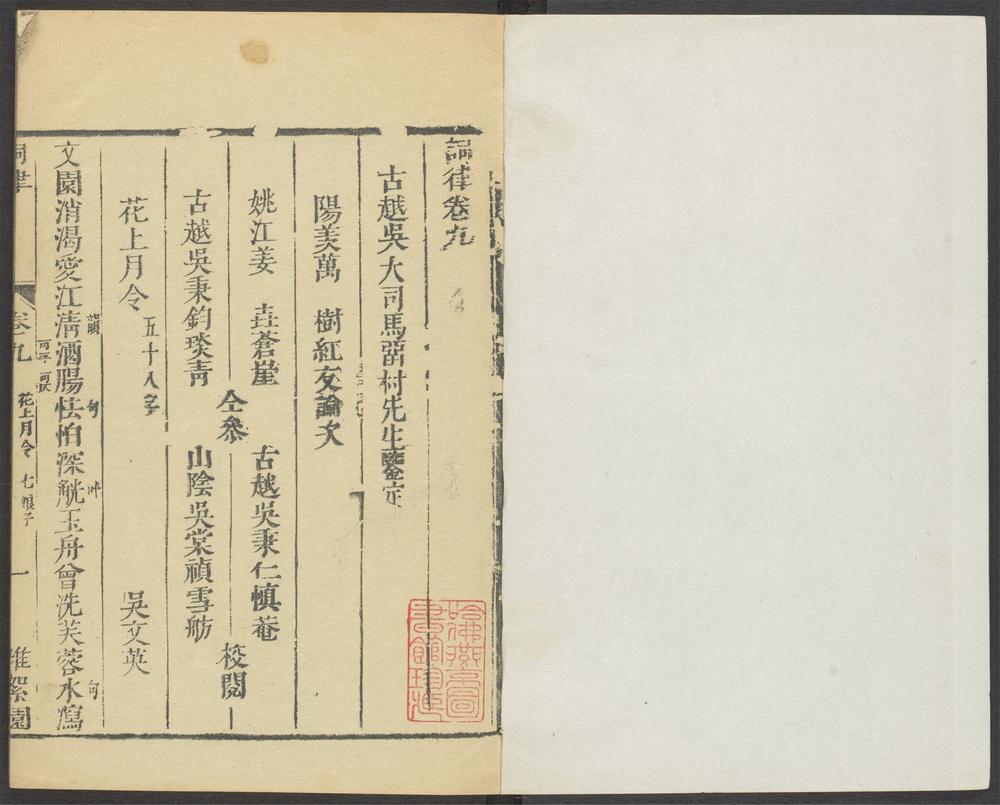 詞律卷九
古越吳大司馬畱村先生鑒定
陽羨萬 樹紅友論次
姚江姜 垚蒼崖
古越吳秉鈞琰青
仝叅
古越吳秉仁慎菴
山陰吳棠禎雪舫
校閱
花上月令 五十八字 吳文英
文園消渴愛江清韻酒腸怯句怕深觥叶玉舟曾洗芙蓉水句瀉
可平 可仄
詞律 卷九 花上月令 七娘子 一 堆絮園
哈佛燕京圖書館珍藏